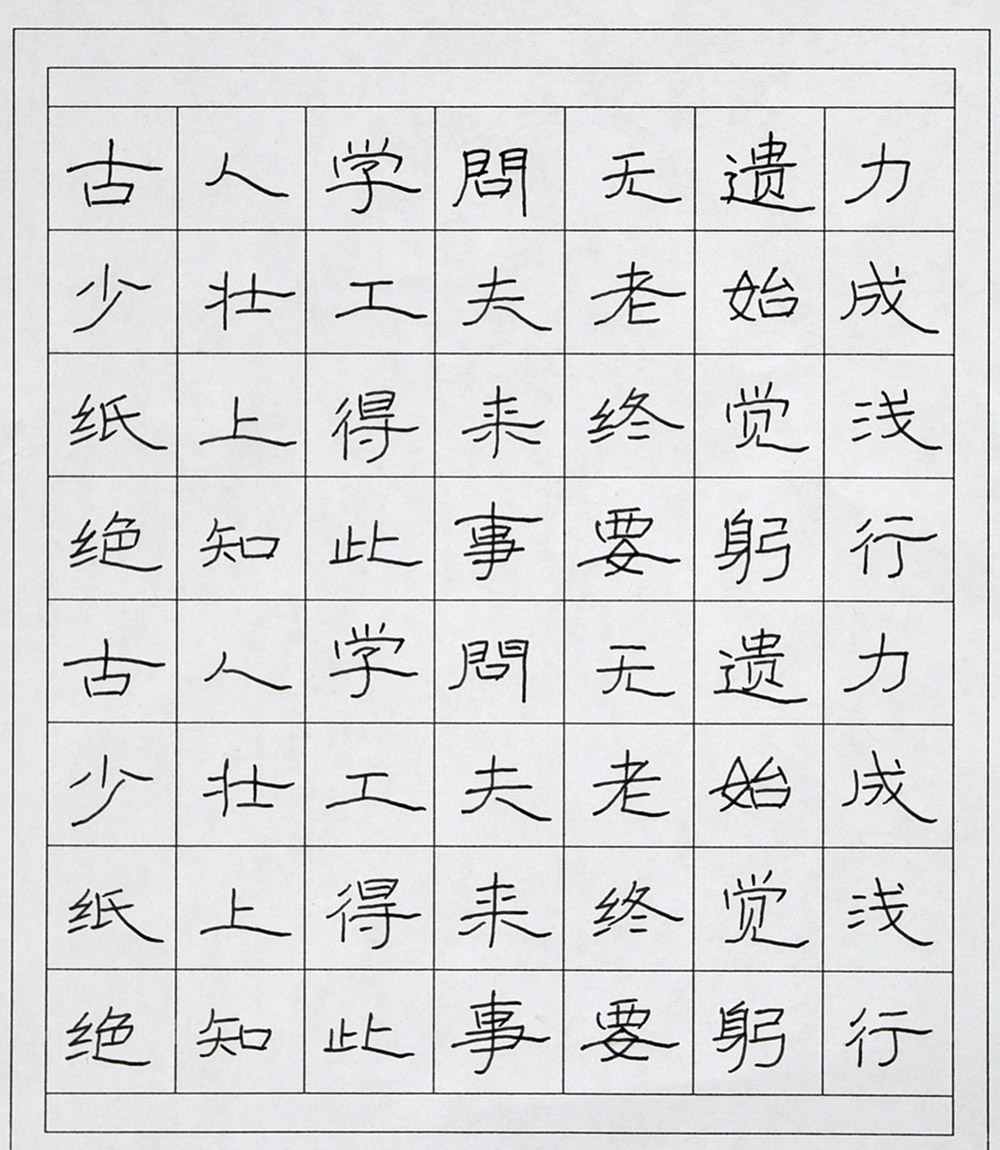 古人学問无遗力
少壮工夫老始成
纸上得来终觉浅
绝知此事要躬行
古人学問无遗力
少壮工夫老始成
纸上得来终觉浅
绝知此事要躬行